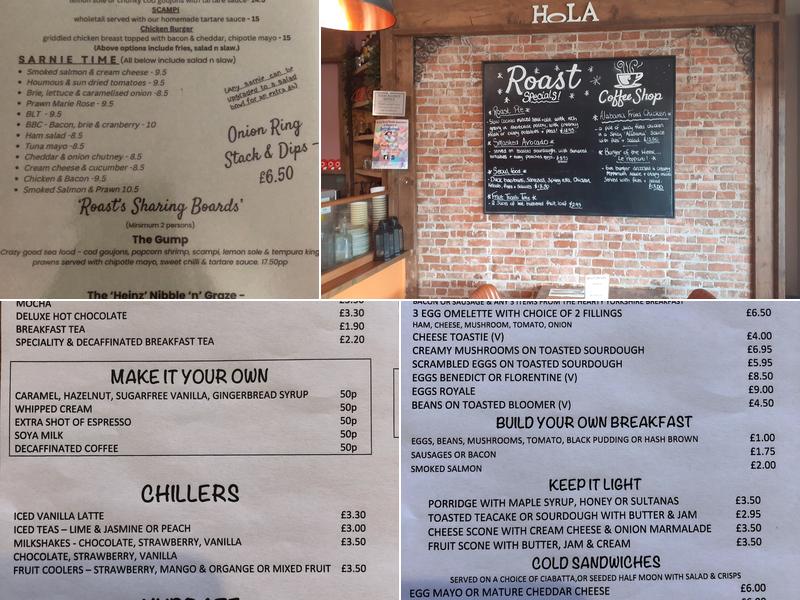 SCAMPI
wholetail served with our homemade tartare sauce - 15
Chicken Burger
griddled chicken breast topped with bacon & cheddar, chipotle mayo - 15
(Above options include fries, salad n slaw.)
SARNIE TIME (All below include salad n slaw)
Smoked salmon & cream cheese - 9.5
Houmous & sun dried tomatoes - 9.5
Brie, lettuce & caramelised onion -8.5
Prawn Marie Rose - 9.5
BLT - 9.5
BBC - Bacon, brie & cranberry - 10
Ham salad -8.5
Tuna mayo -8.5
Cheddar & onion chutney - 8.5
Cream cheese & cucumber -8.5
Chicken & Bacon -9.5
Smoked Salmon & Prawn 10.5
(Any sarnie can be
upgraded to a salad
bowl for an extra
Onion Ring
Stack & Dips -
£6.50
'Roast's Sharing Boards'
(Minimum 2 persons)
The Gump
Crazy good sea food - cod goujons, popcorn shrimp, scampi, lemon sole & tempura king
prawns served with chipotle mayo, sweet chilli & tartare sauce. 17.50pp
The 'Heinz' Nibble 'n' Graze -
HOLA
Roast
Specials!
Coffee Shop
Roast Pie
Smashed Avocado
Alabama Fried Chicken
Burger of the Week
MOCHA
DELUXE HOT CHOCOLATE £3.30
BREAKFAST TEA £1.90
SPECIALITY & DECAFFINATED BREAKFAST TEA £2.20
MAKE IT YOUR OWN
CARAMEL, HAZELNUT, SUGARFREE VANILLA, GINGERBREAD SYRUP 50p
WHIPPED CREAM 50p
EXTRA SHOT OF ESPRESSO 50p
SOYA MILK 50p
DECAFFINATED COFFEE 50p
CHILLERS
ICED VANILLA LATTE £3.30
ICED TEAS – LIME & JASMINE OR PEACH £3.00
MILKSHAKES - CHOCOLATE, STRAWBERRY, VANILLA £3.50
CHOCOLATE, STRAWBERRY, VANILLA
FRUIT COOLERS – STRAWBERRY, MANGO & ORGANGE OR MIXED FRUIT £3.50
BACON OR SAUSAGE & ANY 3 ITEMS FROM THE HEARTY YORKSHIRE BREAKFAST
3 EGG OMELETTE WITH CHOICE OF 2 FILLINGS £6.50
HAM, CHEESE, MUSHROOM, TOMATO, ONION
CHEESE TOASTIE (V) £4.00
CREAMY MUSHROOMS ON TOASTED SOURDOUGH £6.95
SCRAMBLED EGGS ON TOASTED SOURDOUGH £5.95
EGGS BENEDICT OR FLORENTINE (V) £8.50
EGGS ROYALE £9.00
BEANS ON TOASTED BLOOMER (V) £4.50
BUILD YOUR OWN BREAKFAST
EGGS, BEANS, MUSHROOMS, TOMATO, BLACK PUDDING OR HASH BROWN £1.00
SAUSAGES OR BACON £1.75
SMOKED SALMON £2.00
KEEP IT LIGHT
PORRIDGE WITH MAPLE SYRUP, HONEY OR SULTANAS £3.50
TOASTED TEACAKE OR SOURDOUGH WITH BUTTER & JAM £2.95
CHEESE SCONE WITH CREAM CHEESE & ONION MARMALADE £3.50
FRUIT SCONE WITH BUTTER, JAM & CREAM £3.50
COLD SANDWICHES
SERVED ON A CHOICE OF CIABATTA,OR SEEDED HALF MOON WITH SALAD & CRISPS
EGG MAYO OR MATURE CHEDDAR CHEESE £6.00